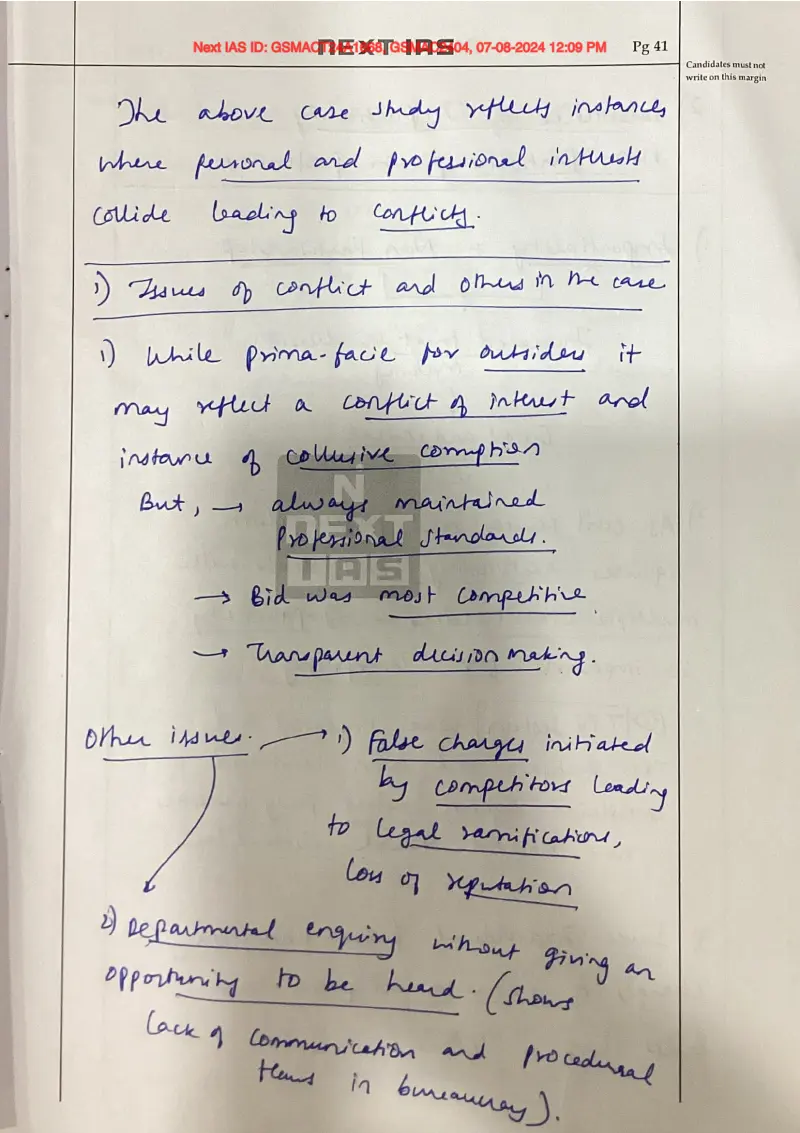 Next IAS ID: GSMACT24A1868, GSMAC2404, 07-08-2024 12:09 PM
NEXT IAS
Pg 41
Candidates must not
write on this margin
The above case study reflects instances
where personal and professional interests
collide leading to conflicts.
1) Issues of conflict and others in the case
1) While prima-facie for outsiders it
may reflect a conflict of interest and
instance of collusive corruption
But, → always maintained
Professional standards.
→ Bid was most competitive
→ Transparent decision making.
NEXT
IAS
Other issues. → 1) False charges initiated
by competitors leading
to legal ramifications,
loss of reputation
2) Departmental enquiry without giving an
opportunity to be heard. (Shows
lack of communication and procedural
flaws in bureaucracy).